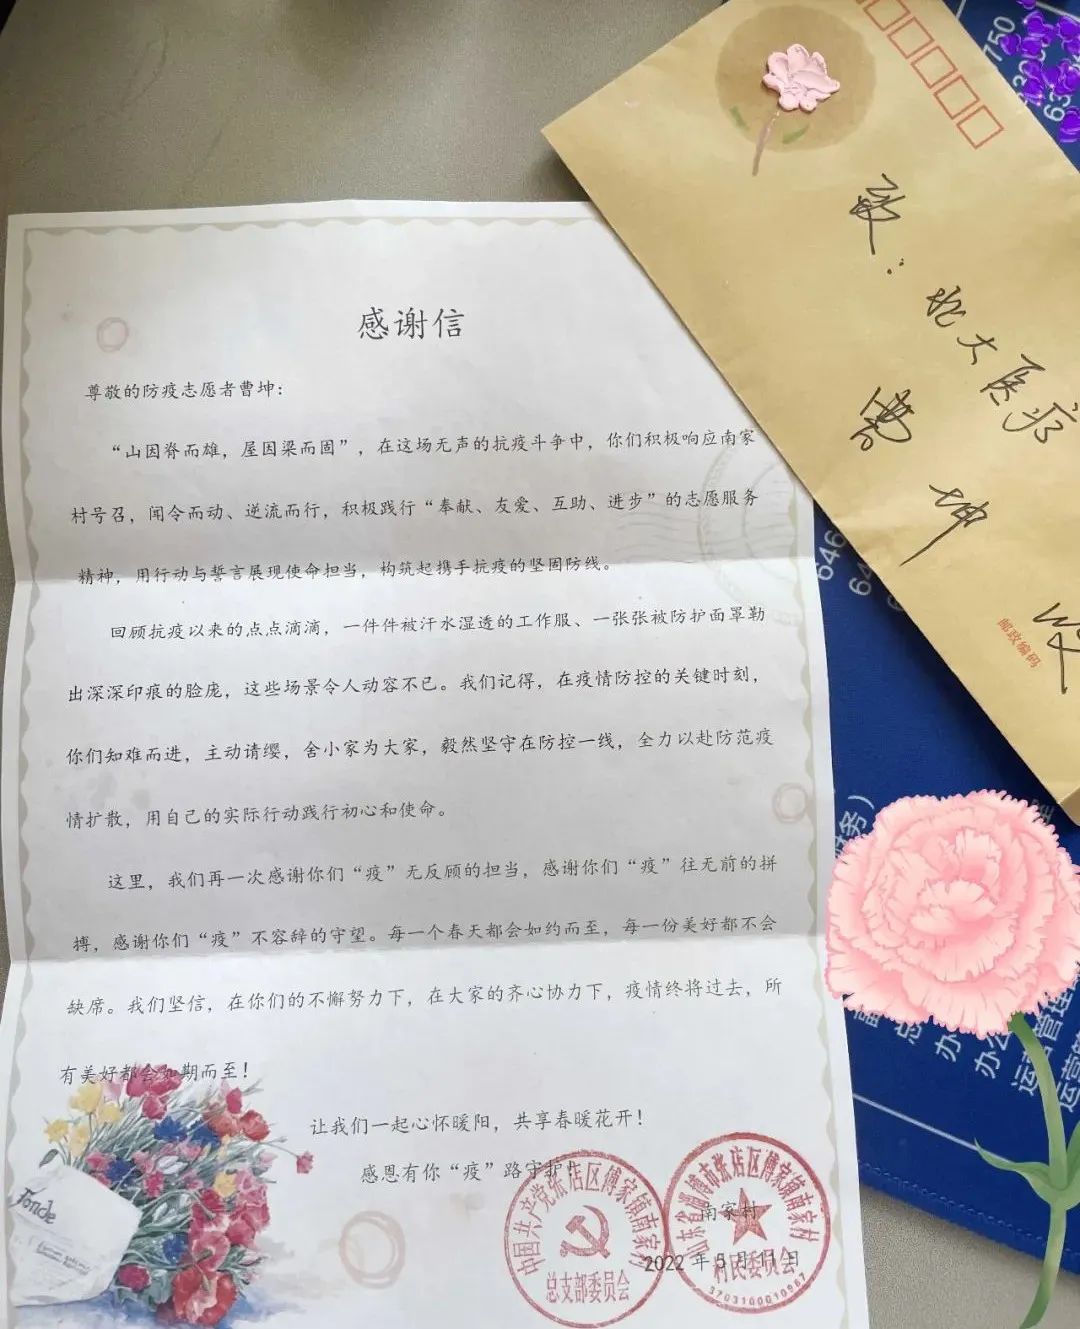 感谢信
尊敬的防疫志愿者曹坤：
“山因脊而雄，屋因梁而固”，在这场无声的抗疫斗争中，你们积极响应南家
村号召，闻令而动、逆流而行，积极践行“奉献、友爱、互助、进步”的志愿服务
精神，用行动与誓言展现使命担当，构筑起携手抗疫的坚固防线。
回顾抗疫以来的点点滴滴，一件件被汗水湿透的工作服、一张张被防护面罩勒
出深深印痕的脸庞，这些场景令人动容不已。我们记得，在疫情防控的关键时刻，
你们知难而进，主动请缨，舍小家为大家，毅然坚守在防控一线，全力以赴防范疫
情扩散，用自己的实际行动践行初心和使命。
这里，我们再一次感谢你们“疫”无反顾的担当，感谢你们“疫”往无前的拼
搏，感谢你们“疫”不容辞的守望。每一个春天都会如约而至，每一份美好都不会
缺席。我们坚信，在你们的不懈努力下，在大家的齐心协力下，疫情终将过去，所
有美好都会如期而至！
让我们一起心怀暖阳，共享春暖花开！
感恩有你“疫”路守护！
南家村
2022 年 5 月 11 日
中国共产党张店区傅家镇南家村
总支部委员会
山东省淄博市张店区傅家镇南家村
村民委员会
3703100010967
致：北大医疗
曹坤
收
邮政编码
750
646
服务）
总
办
办公
运营管理
运营管